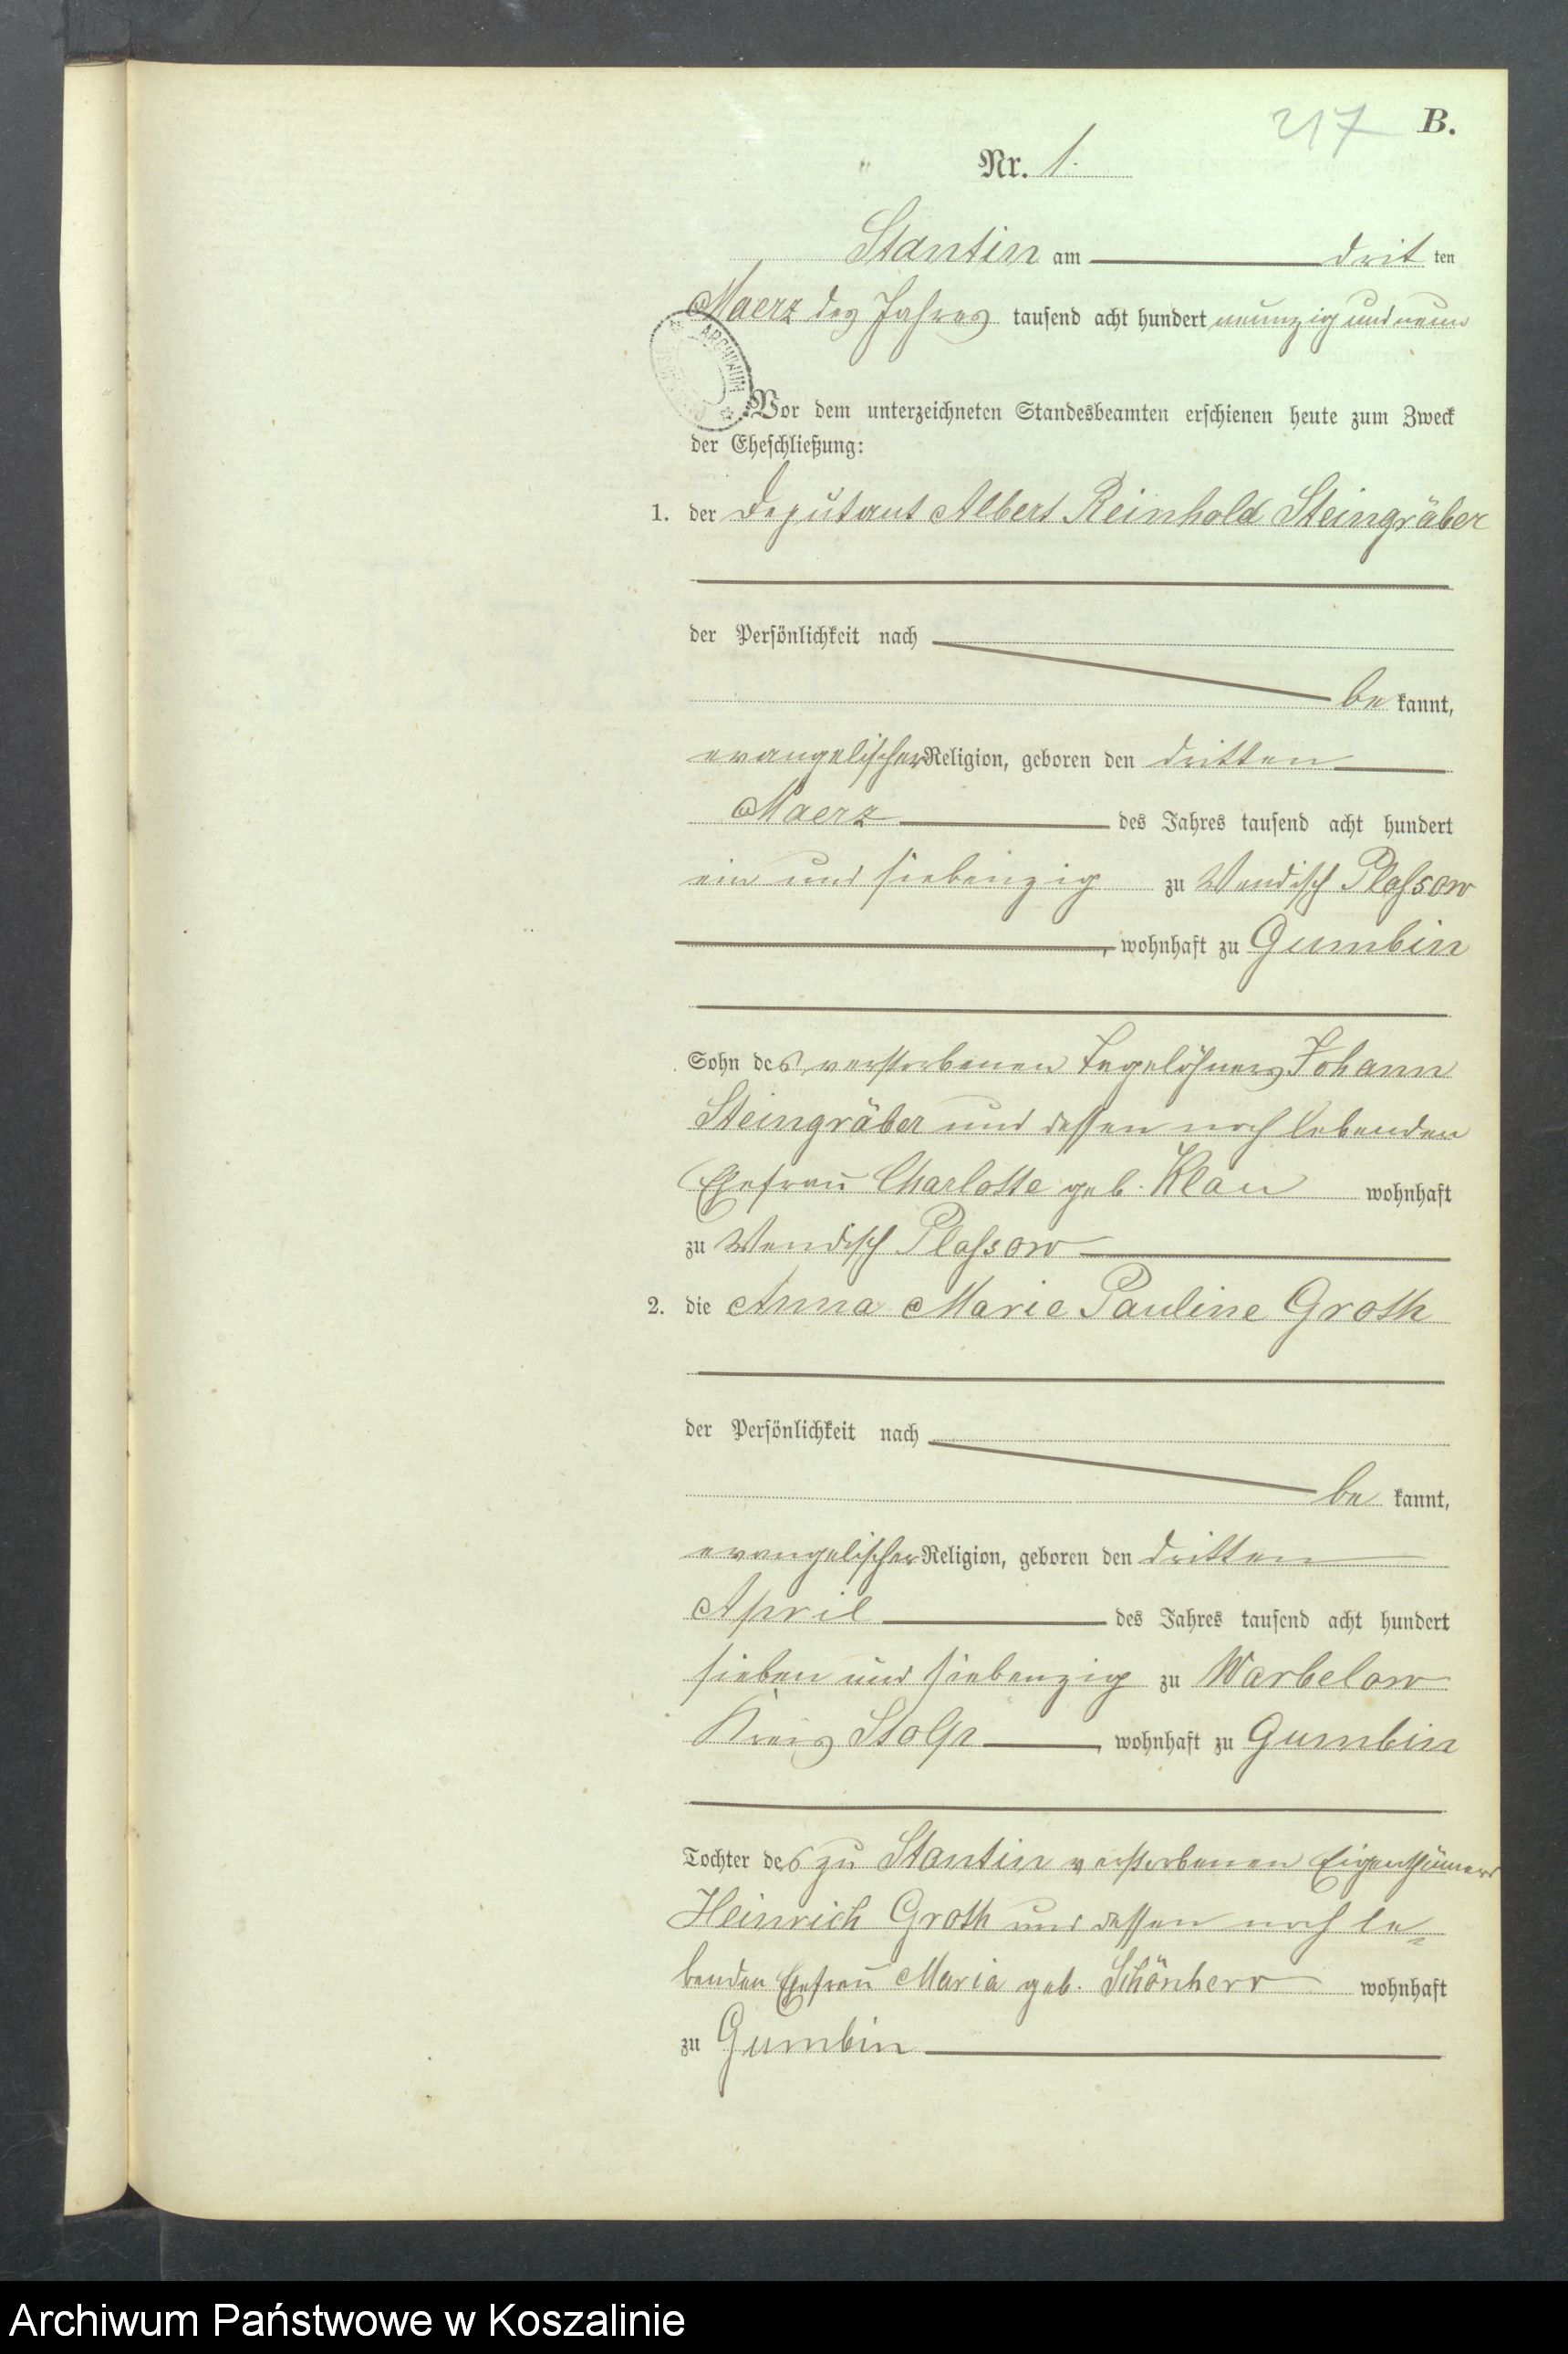 217 B.
Nr. 1.
Stantin am drit ten
Maerz des Jahres tausend acht hundert neunzig und neun
ARCHIWUM
Vor dem unterzeichneten Standesbeamten erschienen heute zum Zweck
der Eheschließung:
1. der Deputant Albert Reinhold Steingräber
der Persönlichkeit nach
be kannt,
evangelischer Religion, geboren den dritten
Maerz des Jahres tausend acht hundert
ein und siebenzig zu Wendisch Plassow
, wohnhaft zu Gumbin
Sohn des verstorbenen Tagelöhners Johann
Steingräber und dessen noch lebenden
Ehefrau Charlotte geb. Klau wohnhaft
zu Wendisch Plassow
2. die Anna Marie Pauline Groth
der Persönlichkeit nach
be kannt,
evangelischer Religion, geboren den dritten
April des Jahres tausend acht hundert
sieben und siebenzig zu Warbelow
Kreis Stolp, wohnhaft zu Gumbin
Tochter des zu Stantin verstorbenen Eigenthümers
Heinrich Groth und dessen noch le-
benden Ehefrau Maria geb. Schönherr wohnhaft
zu Gumbin
Archiwum Państwowe w Koszalinie